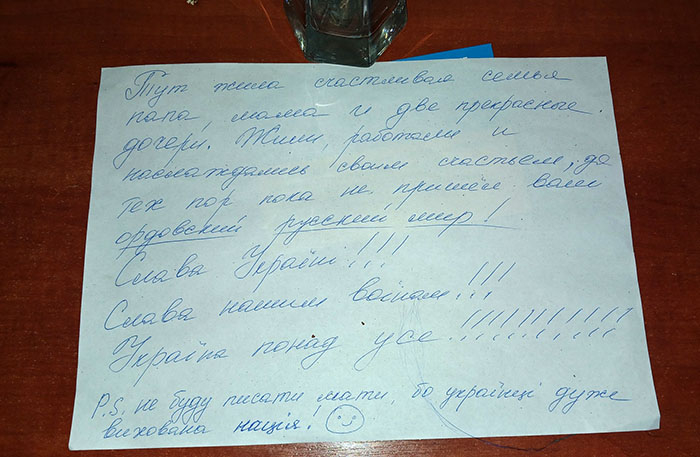 Тут жила счастливая семья
папа, мама и две прекрасные
дочери. Жили, работали и
наслаждались своим счастьем, до
тех пор пока не пришёл ваш
ордовский русский мир!
Слава Україні!!!
Слава нашим воінам!!!
Україна понад усе!!!!!!!!!!!
P.S. не буду писати мати, бо українці дуже
вихована нація!